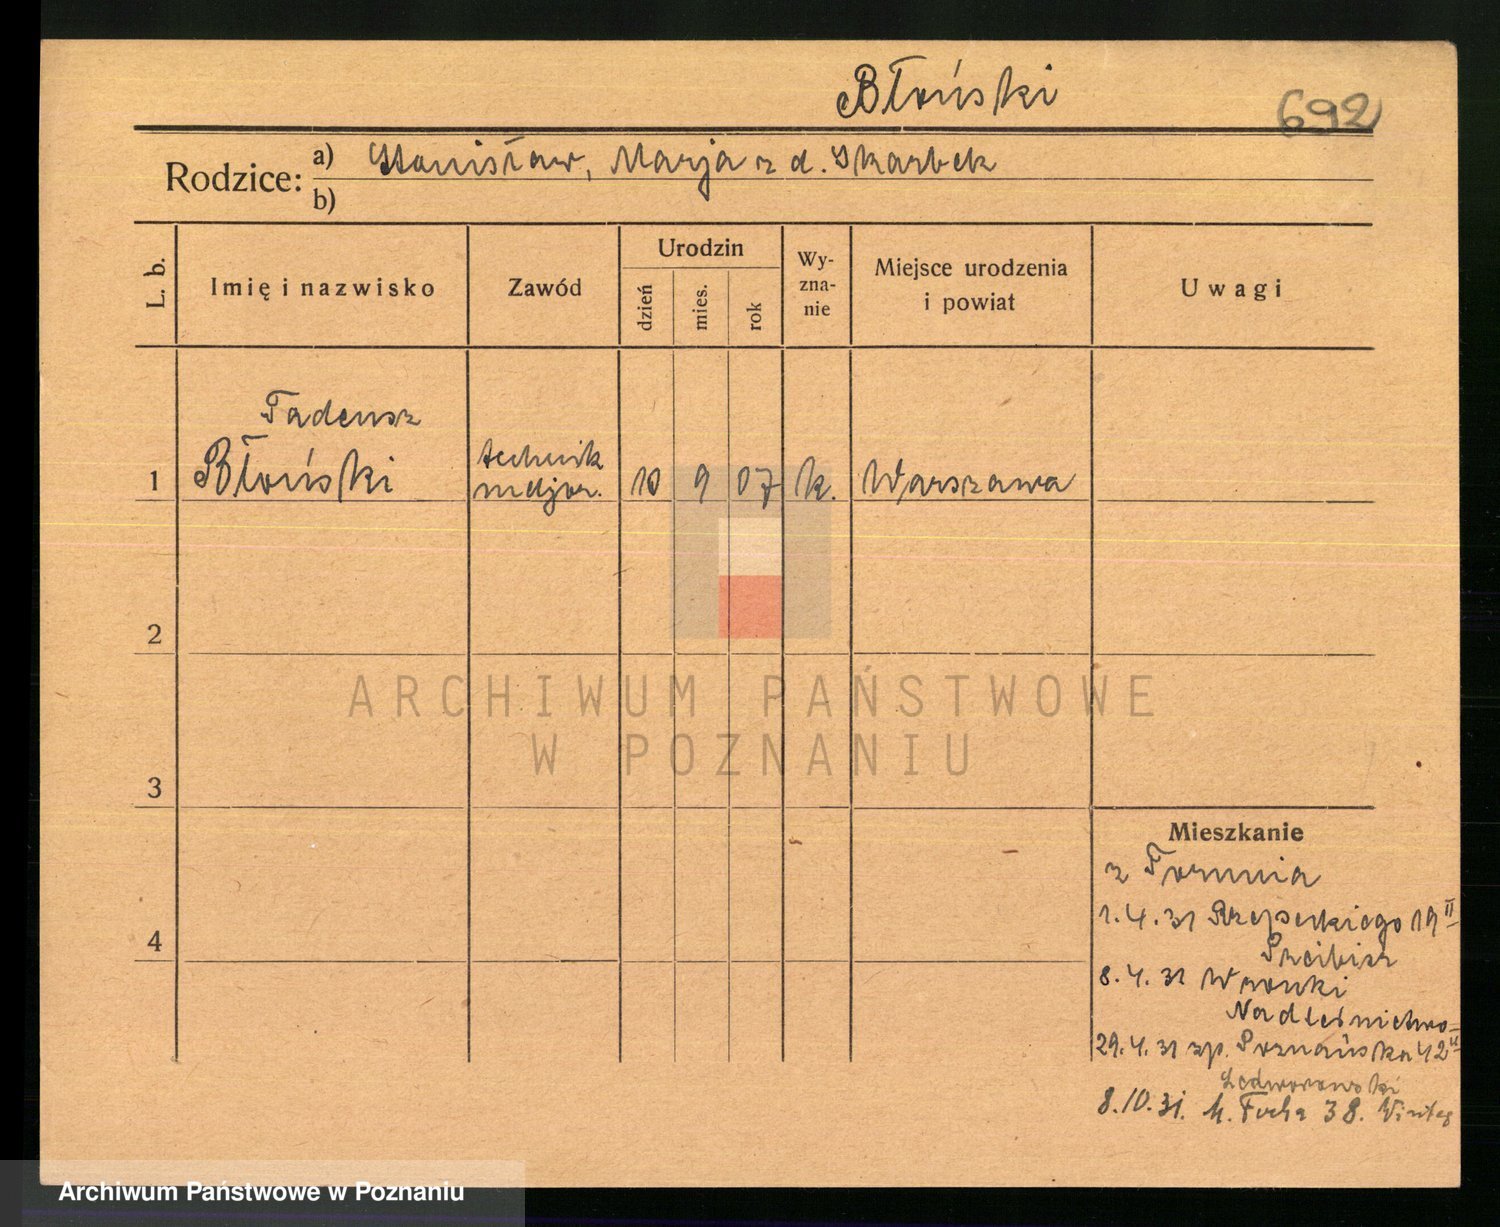 Błoński
692
Rodzice: a) Stanisław, Marja z d. Skarbek
b)
L. b.
Imię i nazwisko
Zawód
Urodzin
dzień
mies.
rok
Wy-
zna-
nie
Miejsce urodzenia
i powiat
Uwagi
Tadeusz
1 Błoński
technik
10 9 07 k. Warszawa
2
3
4
ARCHIWUM PAŃSTWOWE
W POZNANIU
Mieszkanie
z Torunia
1.4.31 Rzepeckiego 19 II
8.4.31 Wronki
Nadleśnictwo
29.4.31 zp. Poznańska 42
8.10.31. M. Focha 38.
Archiwum Państwowe w Poznaniu